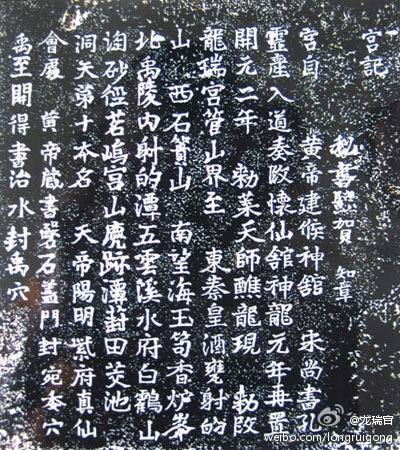 宫記
秘書監賀 知章
宫自 黄帝建候神舘 宋尚書孔
靈産入道奏改懷仙舘神龍元年再置
開元二年 勑葉天師醮龍現 勑改
龍瑞宫管山界至 東秦皇酒甕射的
山 西石簣山 南望海玉笥香炉峯
北禹陵内射的潭五雲溪水府白鶴山
淘砂徑茗塢宫山鹿跡潭葑田茭池
洞天第十本名 天帝陽明紫府真仙
會處 黄帝藏書磐石盖門封宛委穴
禹至開得書治水封禹穴
@龙瑞宫
weibo.com/longruigong